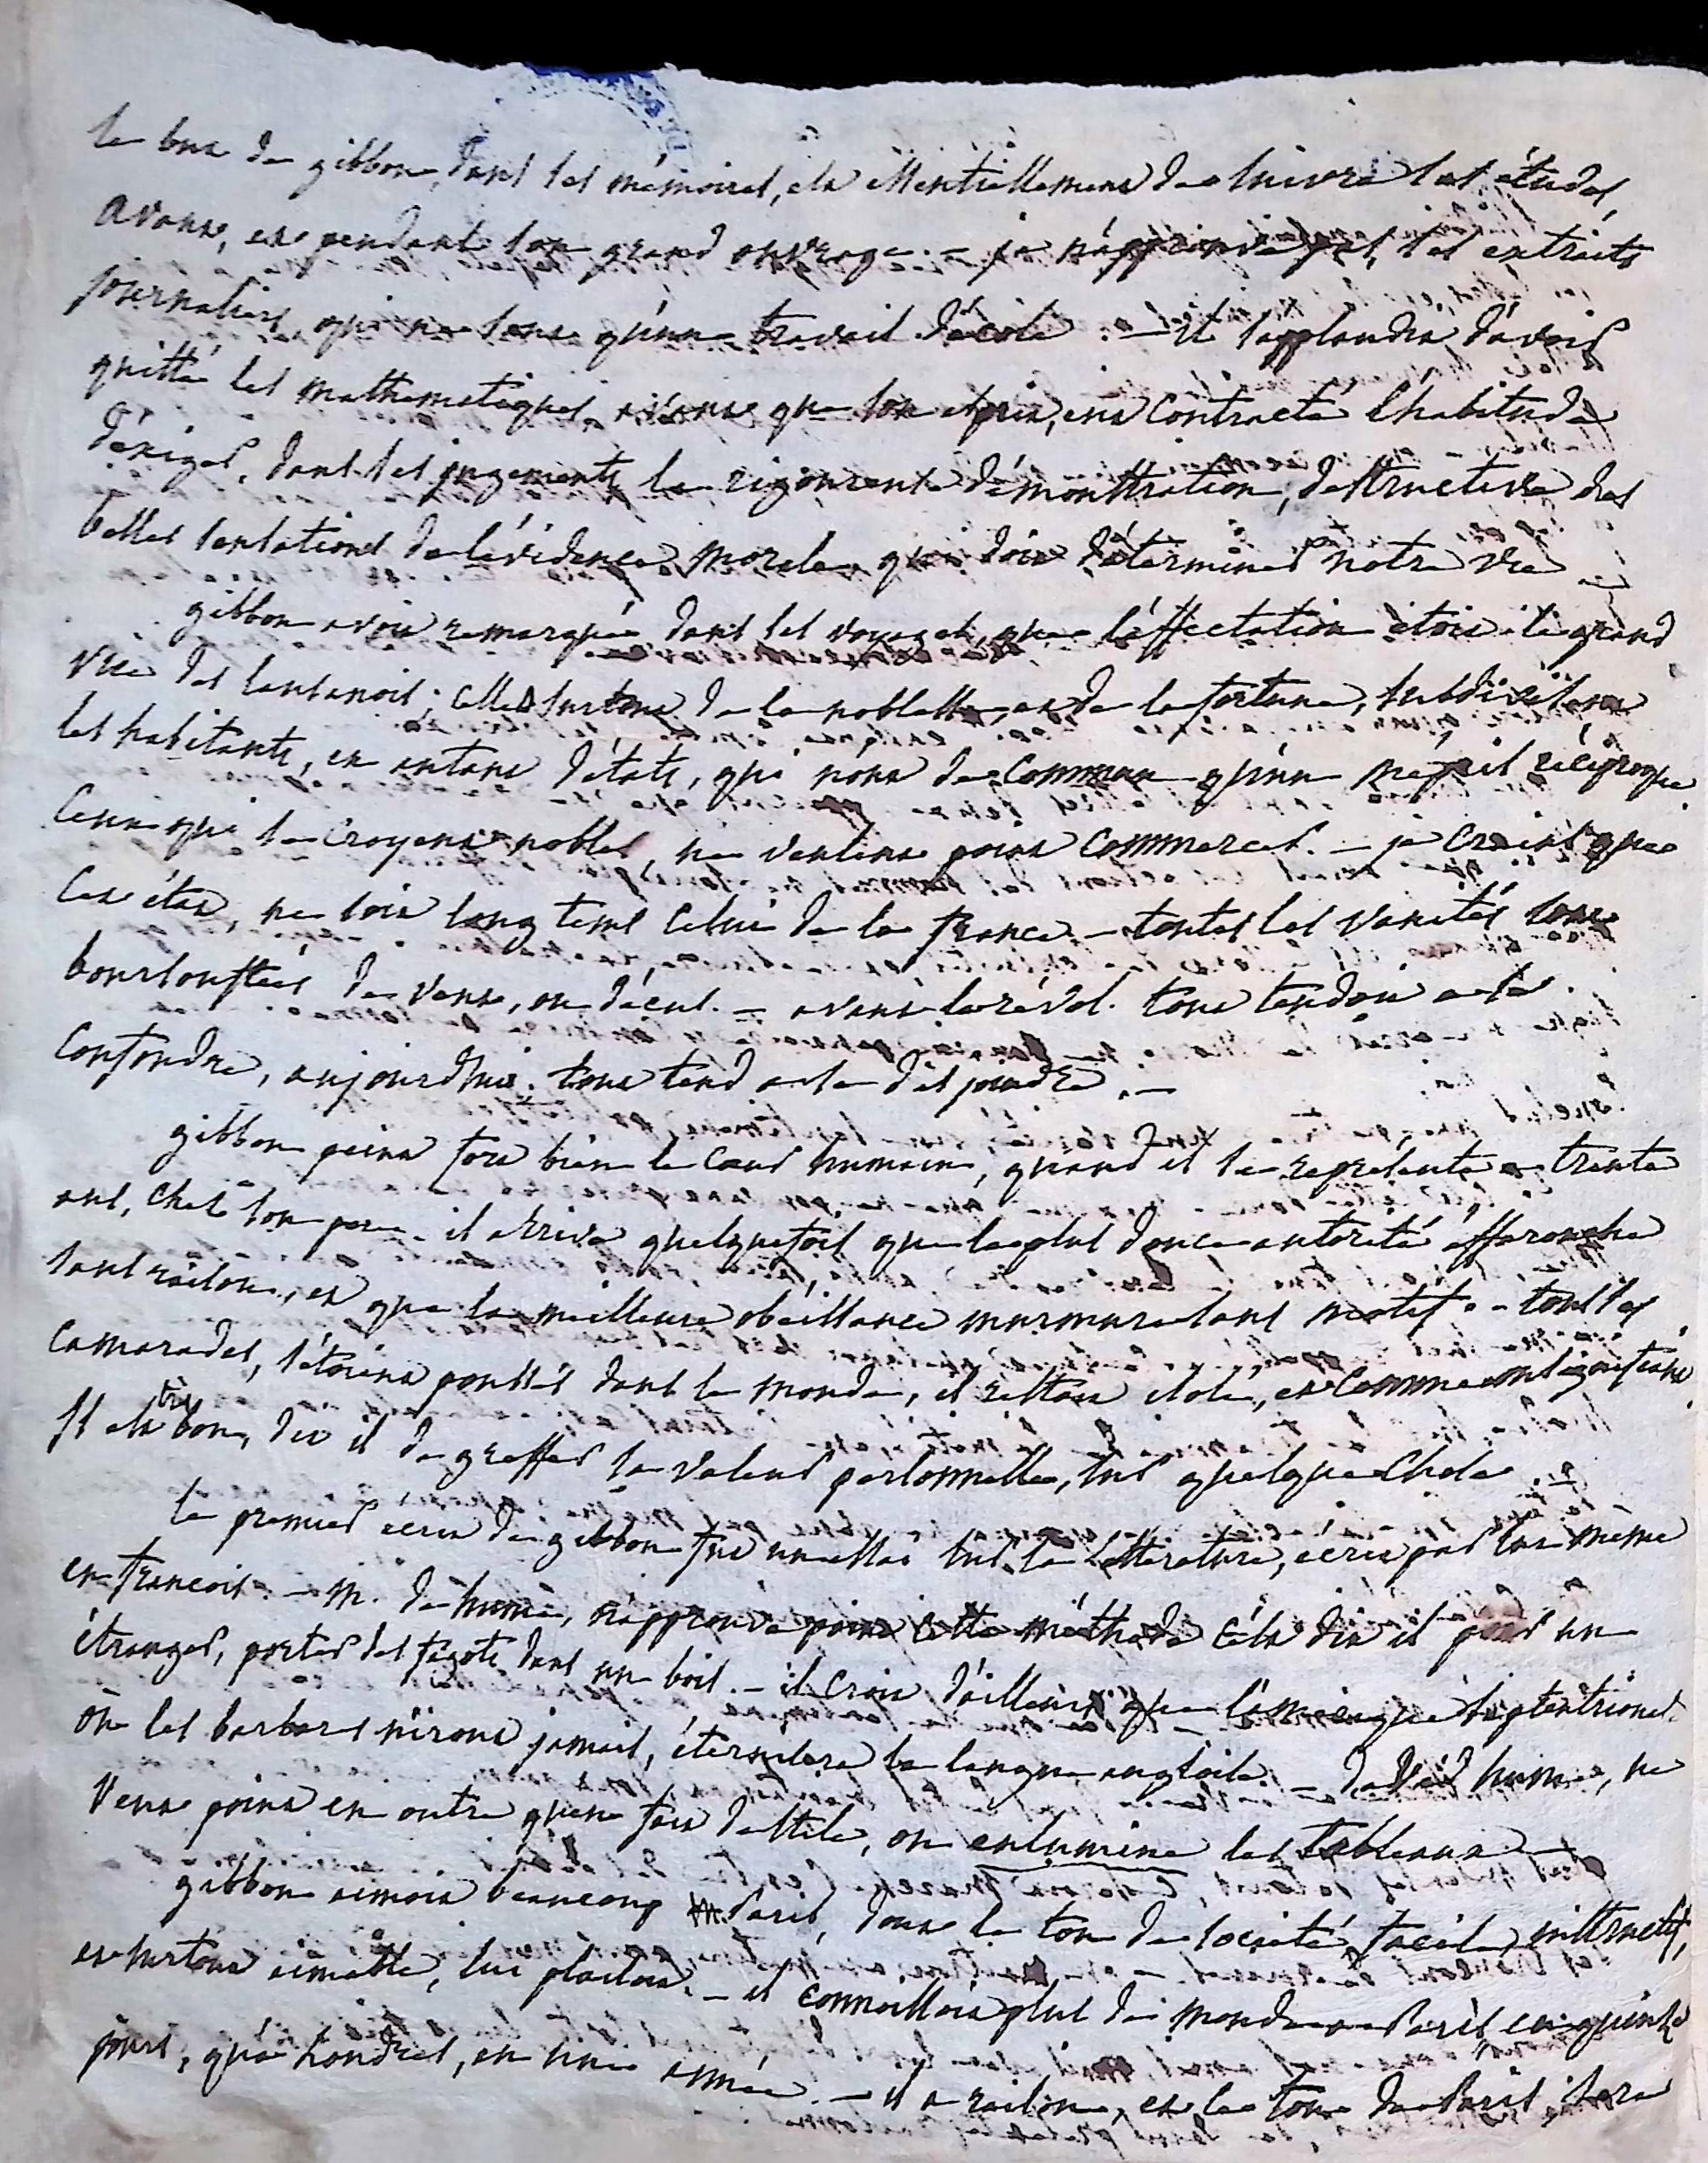 le but de gibbon, dans ses mémoires, est essentiellement de suivre ses études,
avant, et pendant son grand ouvrage. – je n'approuve pas, ses extraits
journaliers, qui ne sont qu'un travail d'école. – il s'applaudit d'avoir
quitté les mathematiques, avant que son esprit, eut contracté l'habitude
d'exiger, dans ses jugements la rigoureuse démonstration, destructive des
belles sensations de l'évidence morale, qui doit déterminer notre vie –
gibbon avoit remarqué dans ses voyages, que l'affectation étoit le grand
vice des lausanois; celle surtout de la noblesse, et de la fortune, subdivisoit
les habitants, en autant d'états, qui n'ont de commun qu'un mépris réciproque.
Ceux qui se croyent nobles, ne veulent point commercer. – je crains que
cet état, ne soit long tems celui de la france. – toutes les vanités sont
boursouflées de vent, ou d'écus. – avant la révol. tout tendoit a se
confondre, aujourdhui tout tend a se disjoindre. –
gibbon peint fort bien le cœur humain, quand il se represente a trente
ans, chez son pere. il arrive quelquefois que la plus douce autorité effarouche
sans raison, et que la meilleure obéissance murmure sans motif. – tous ses
camarades, s'étoient poussés dans le monde, il restoit isolé, et comme
Il est très bon, dit il de greffer sa valeur personnelle, sur quelque chose.
le premier écrit de gibbon fut un essai sur la Litterature, écrit par lui même
en francois. – M. de hume, n'approuve point cette méthode c'est dit il pour un
étranger, porter des fagots dans un bois. – il croit d'ailleurs que l'amérique septentrionale
où les barbares n'iront jamais, éternisera la langue angloise. – david hume, ne
veut point en outre qu'en fait de stile, on enlumine les tableaux –
gibbon aimoit beaucoup Paris, dont le ton de societé, facile, instructif,
et surtout aimable, lui plaisoit. – il connoissoit plus de monde a Paris en quinze
jours, qu'a Londres, en une année. – il a raison, et le ton de Paris sera